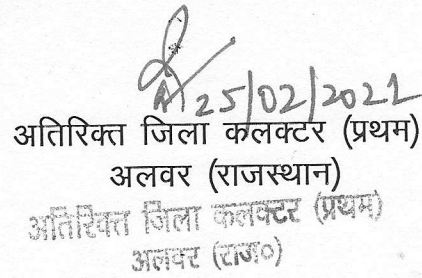 25/02/2021
अतिरिक्त जिला कलक्टर (प्रथम)
अलवर (राजस्थान)
अतिरिक्त जिला कलक्टर (प्रथम)
अलवर (राज०)